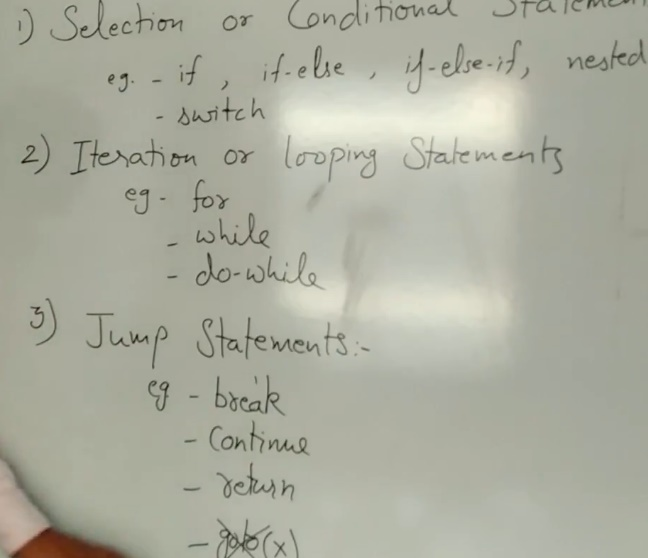 1) Selection or Conditional Statemen
eg. - if, if-else, if-else-if, nested
- switch
2) Iteration or looping Statements
eg - for
- while
- do-while
3) Jump Statements:-
eg - break
- Continue
- return
- goto (x)